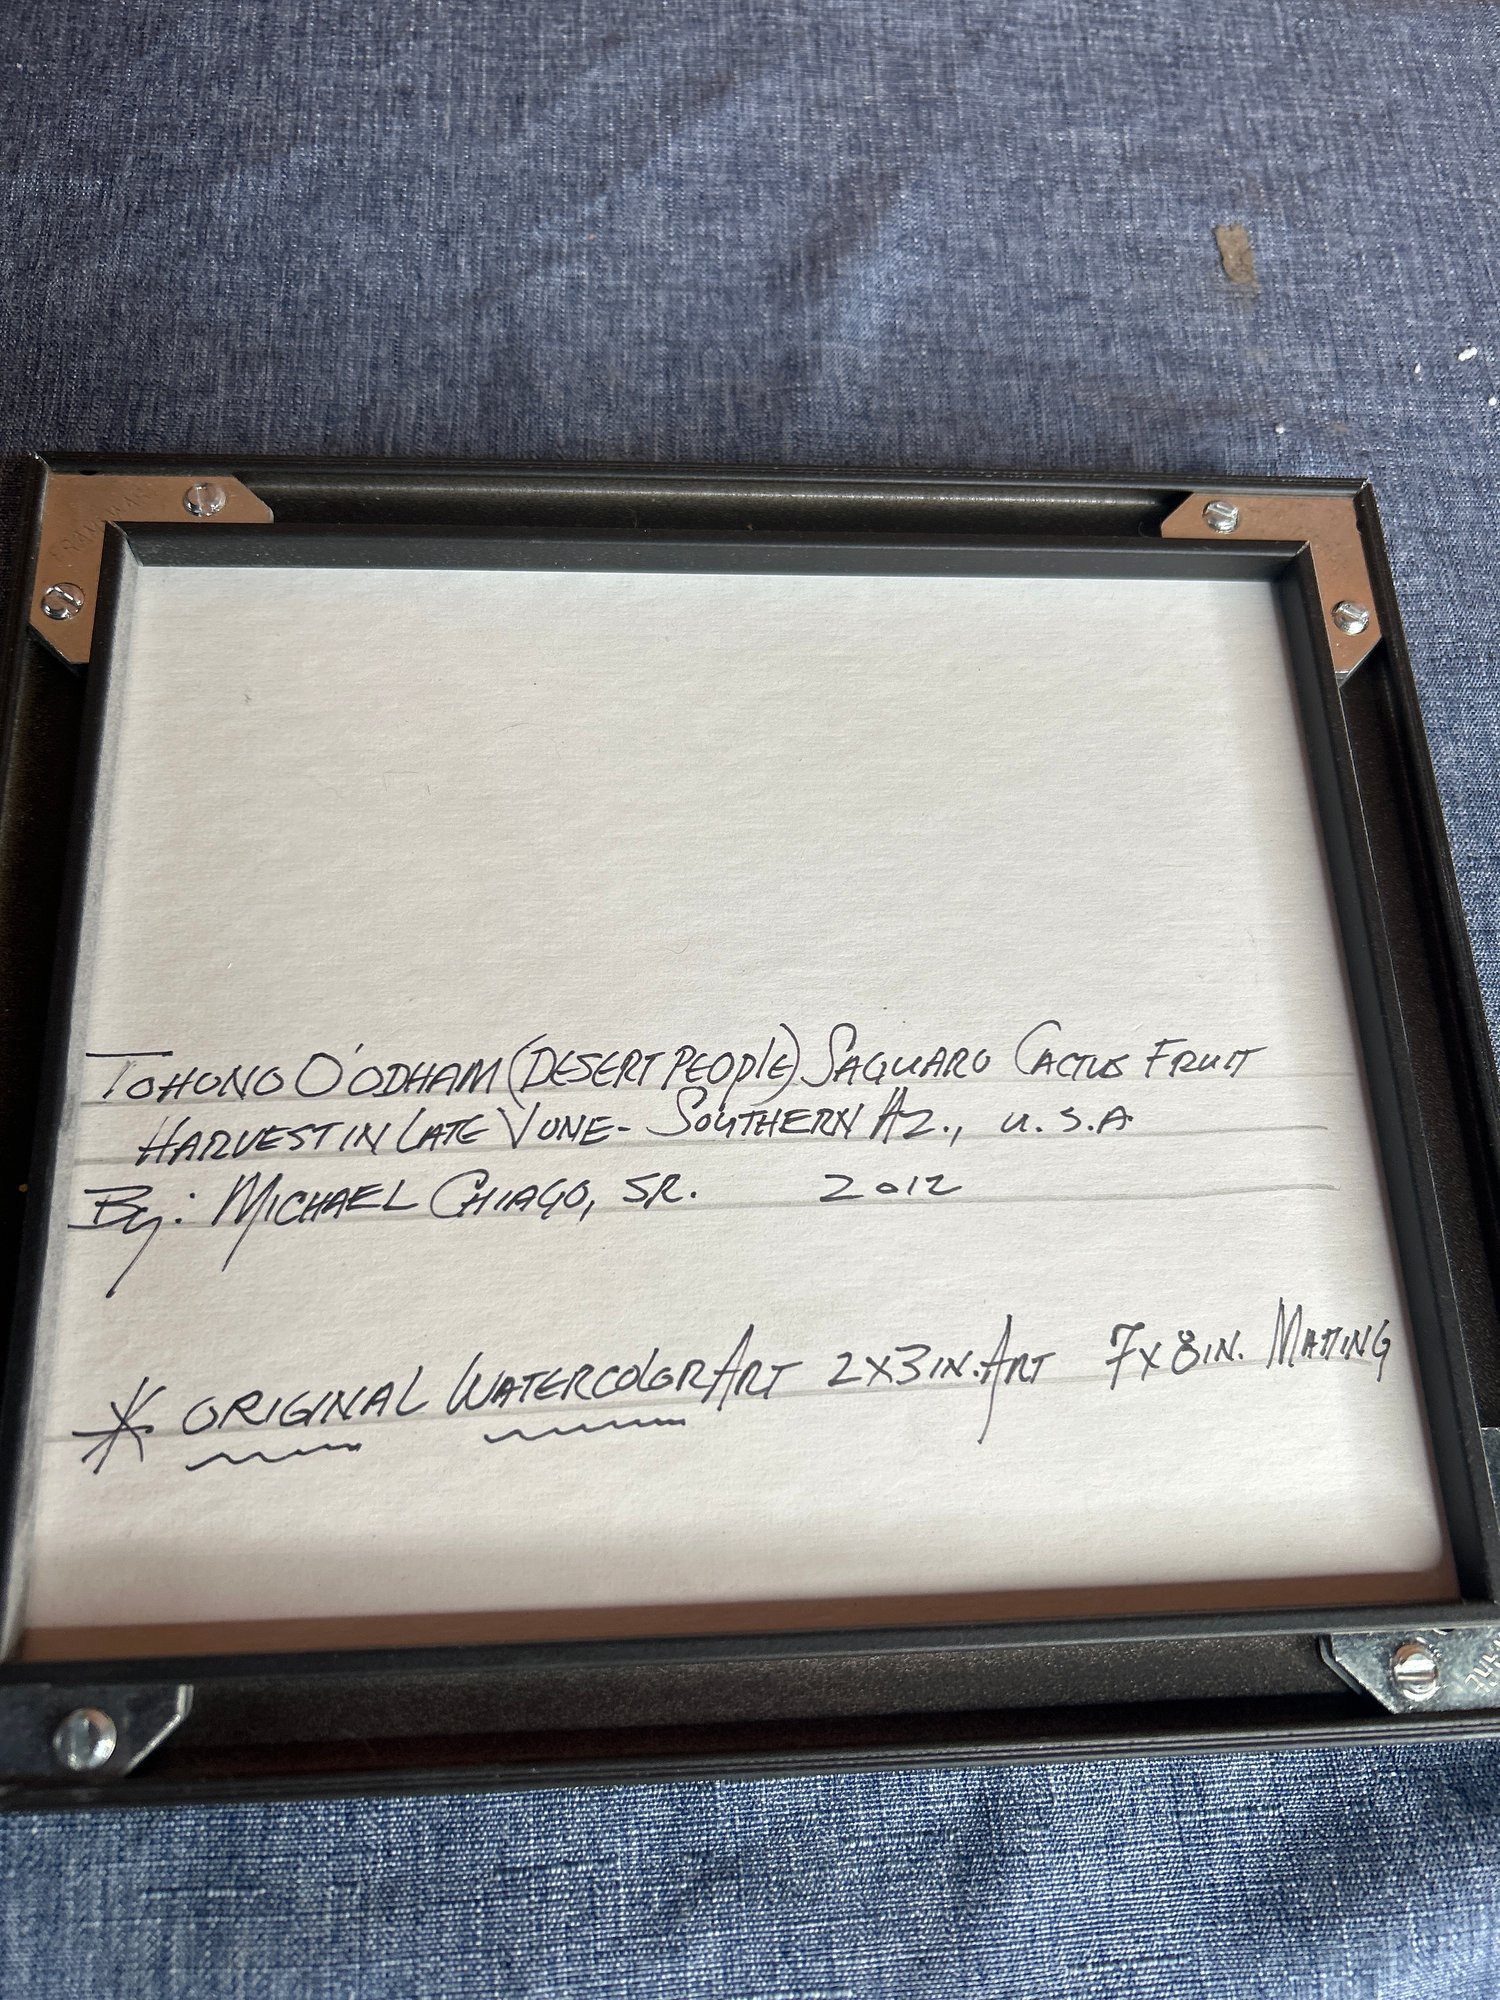 TOHONO O'ODHAM (DESERT PEOPLE) SAGUARO CACTUS FRUIT
HARVEST IN LATE JUNE- SOUTHERN AZ., U.S.A
By: MICHAEL CHIAGO, SR. 2012
* ORIGINAL WATERCOLOR ART 2x3 IN. ART 7x8 IN. MATTING